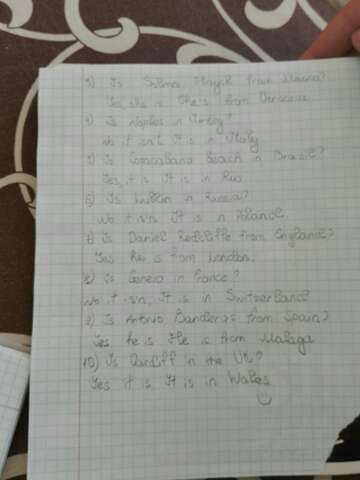 Is Salma Hayek from Mexico?
Yes, she is She is from
Is Naples in Turkey?
No it isn't It is in Italy
Is Copacabana Beach in Brazil?
Yes, it is It is in Rio
Is in Russia?
No it isn, It is in Poland.
7) Is Daniel Redcliffe from England?
Yes he is from London.
8) Is Geneva in France?
No it isn, It is in Switzerland
9) Is Antonio Banderas from Spain?
Yes he is He is from Malaga
10) Is Cardiff in the UK?
Yes it is. It is in Wales